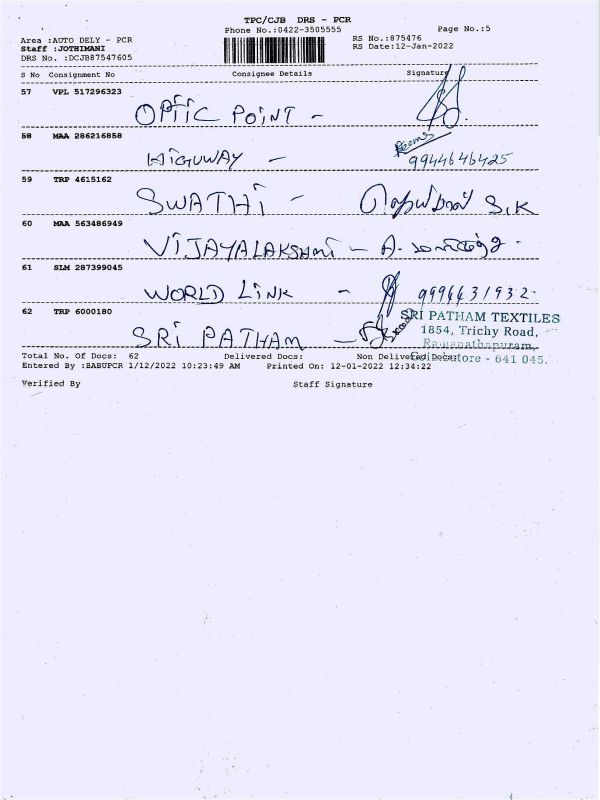 TPC/CJB DRS - PCR
Phone No.:0422-3505555 Page No.:5
Area :AUTO DELY - PCR RS No.:875476
Staff :JOTHIMANI RS Date:12-Jan-2022
DRS No. :DCJB87547605
S No Consignment No Consignee Details Signature
57 VPL 517296323
OPTIC POINT -
58 MAA 286216858
HIGUWAY - 9944646425
59 TRP 4615162
SWATHI - S.K
60 MAA 563486949
VIJAYALAKSHMI - A.
61 SLM 287399045
WORLD LINK - 9994431932.
62 TRP 6000180
SRI PATHAM -
SRI PATHAM TEXTILES
1854, Trichy Road,
Ramanathapuram,
Coimbatore - 641 045.
Total No. Of Docs: 62 Delivered Docs: Non Delivered Docs:
Entered By :BABUPCR 1/12/2022 10:23:49 AM Printed On: 12-01-2022 12:34:22
Verified By Staff Signature